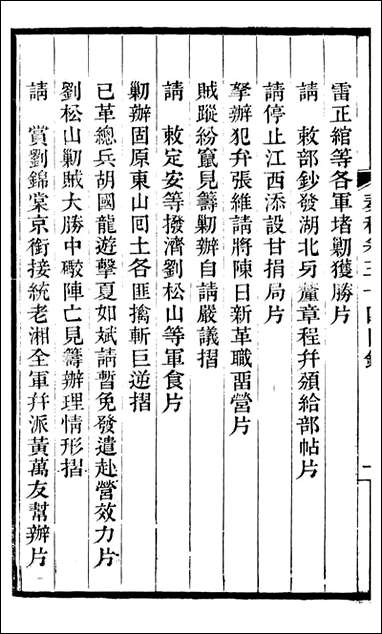 雷正綰等各軍堵勦獲勝片
請　敕部鈔發湖北牙釐章程幷頒給部帖片
請停止江西添設甘捐局片
拏辦犯弁張維請將陳日新革職畱營片
賊蹤紛竄見籌勦辦自請嚴議摺
請　敕定安等撥濟劉松山等軍食片
勦辦固原東山囘土各匪擒斬巨逆摺
已革總兵胡國龍遊擊夏如斌請暫免發遣赴營效力片
劉松山勦賊大勝中礮陣亡見籌辦理情形摺
請　賞劉錦棠京銜接統老湘全軍幷派黃萬友幫辦片